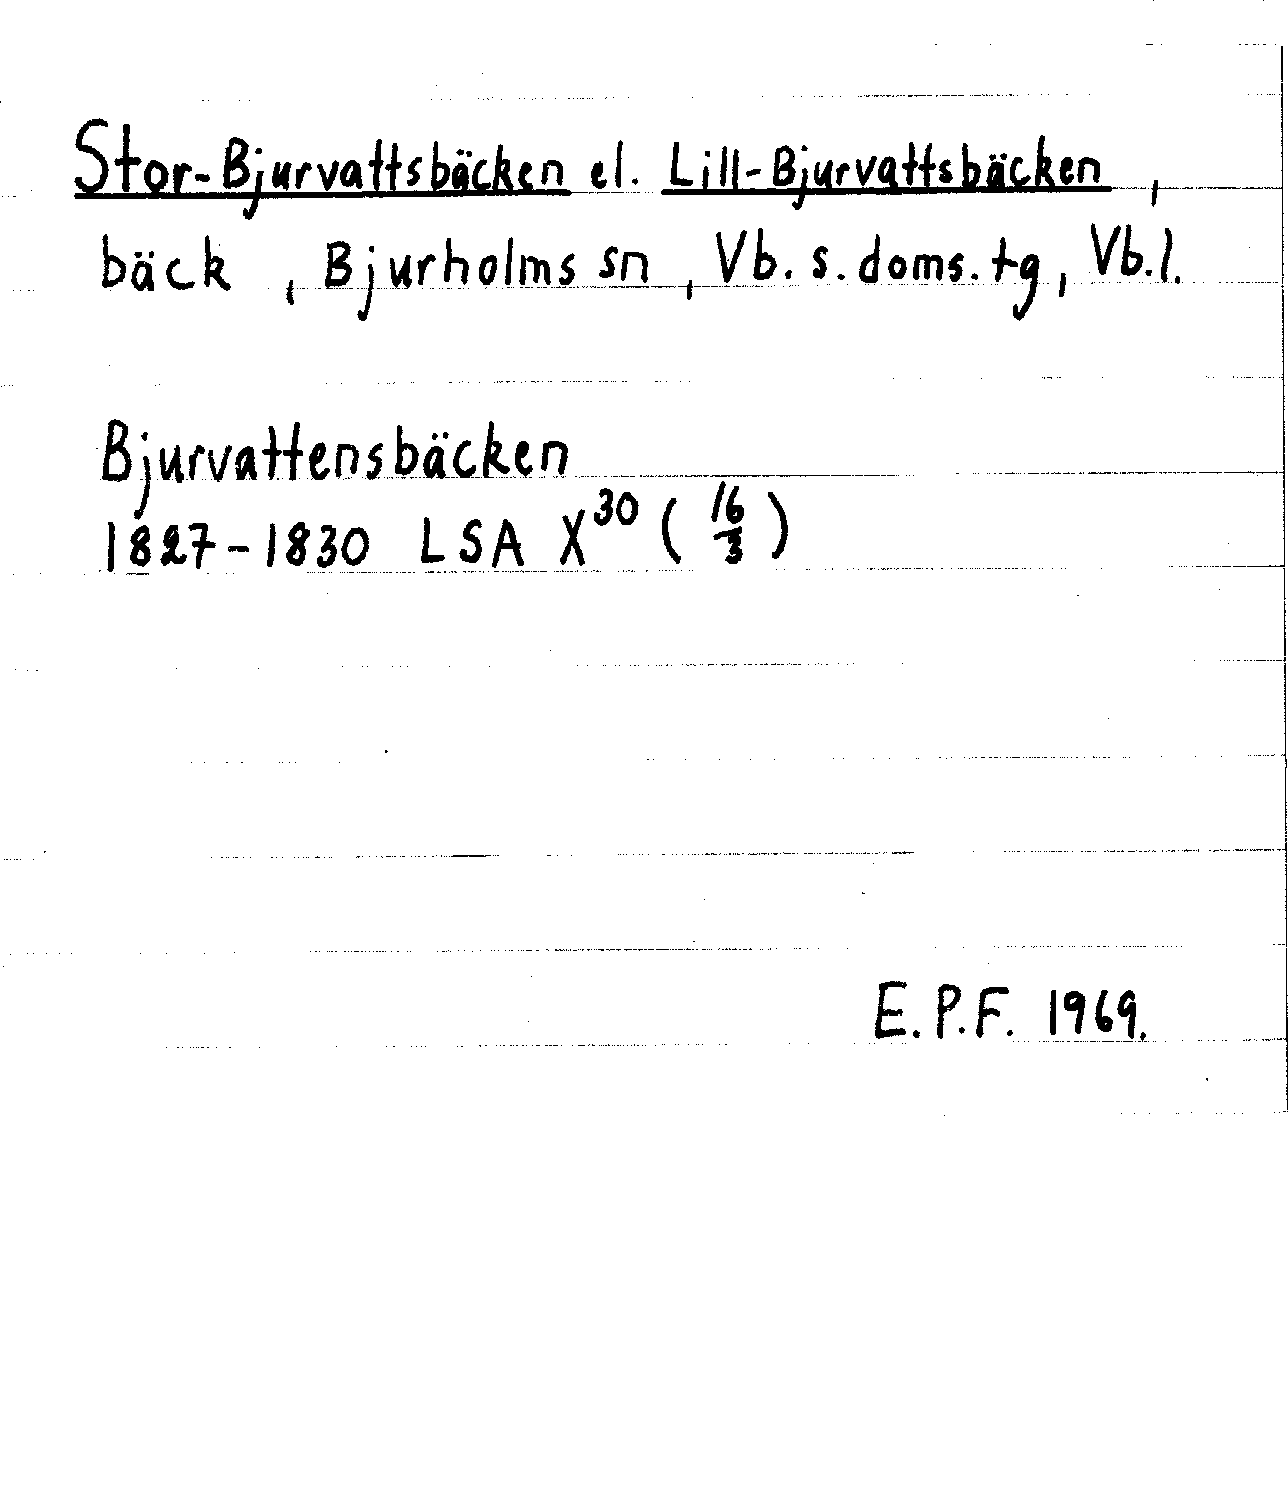 Stor-Bjurvattsbäcken el. Lill-Bjurvattsbäcken,
bäck, Bjurholms sn, Vb. s. doms. tg, Vb. l.
Bjurvattensbäcken
1827-1830 LSA X³⁰ (16/3)
E.P.F. 1969.